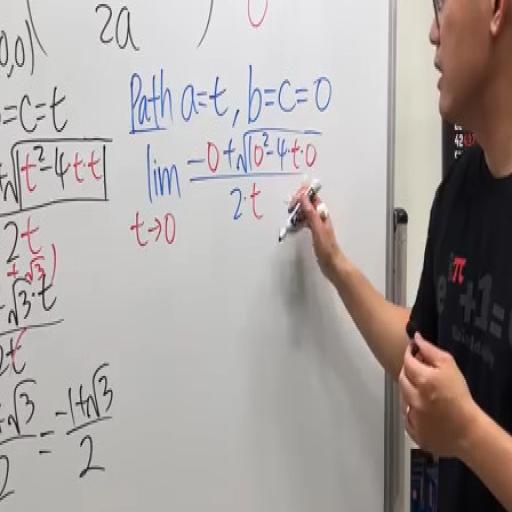 0,0)
2a ) 0
=C=t
√t²-4·t·t
2t
+√3)
√3·t
2t
+√3 / 2 = -1+√3 / 2
Path a=t, b=c=0
lim t→0 -0+√0²-4·t·0 / 2·t
π
+1=